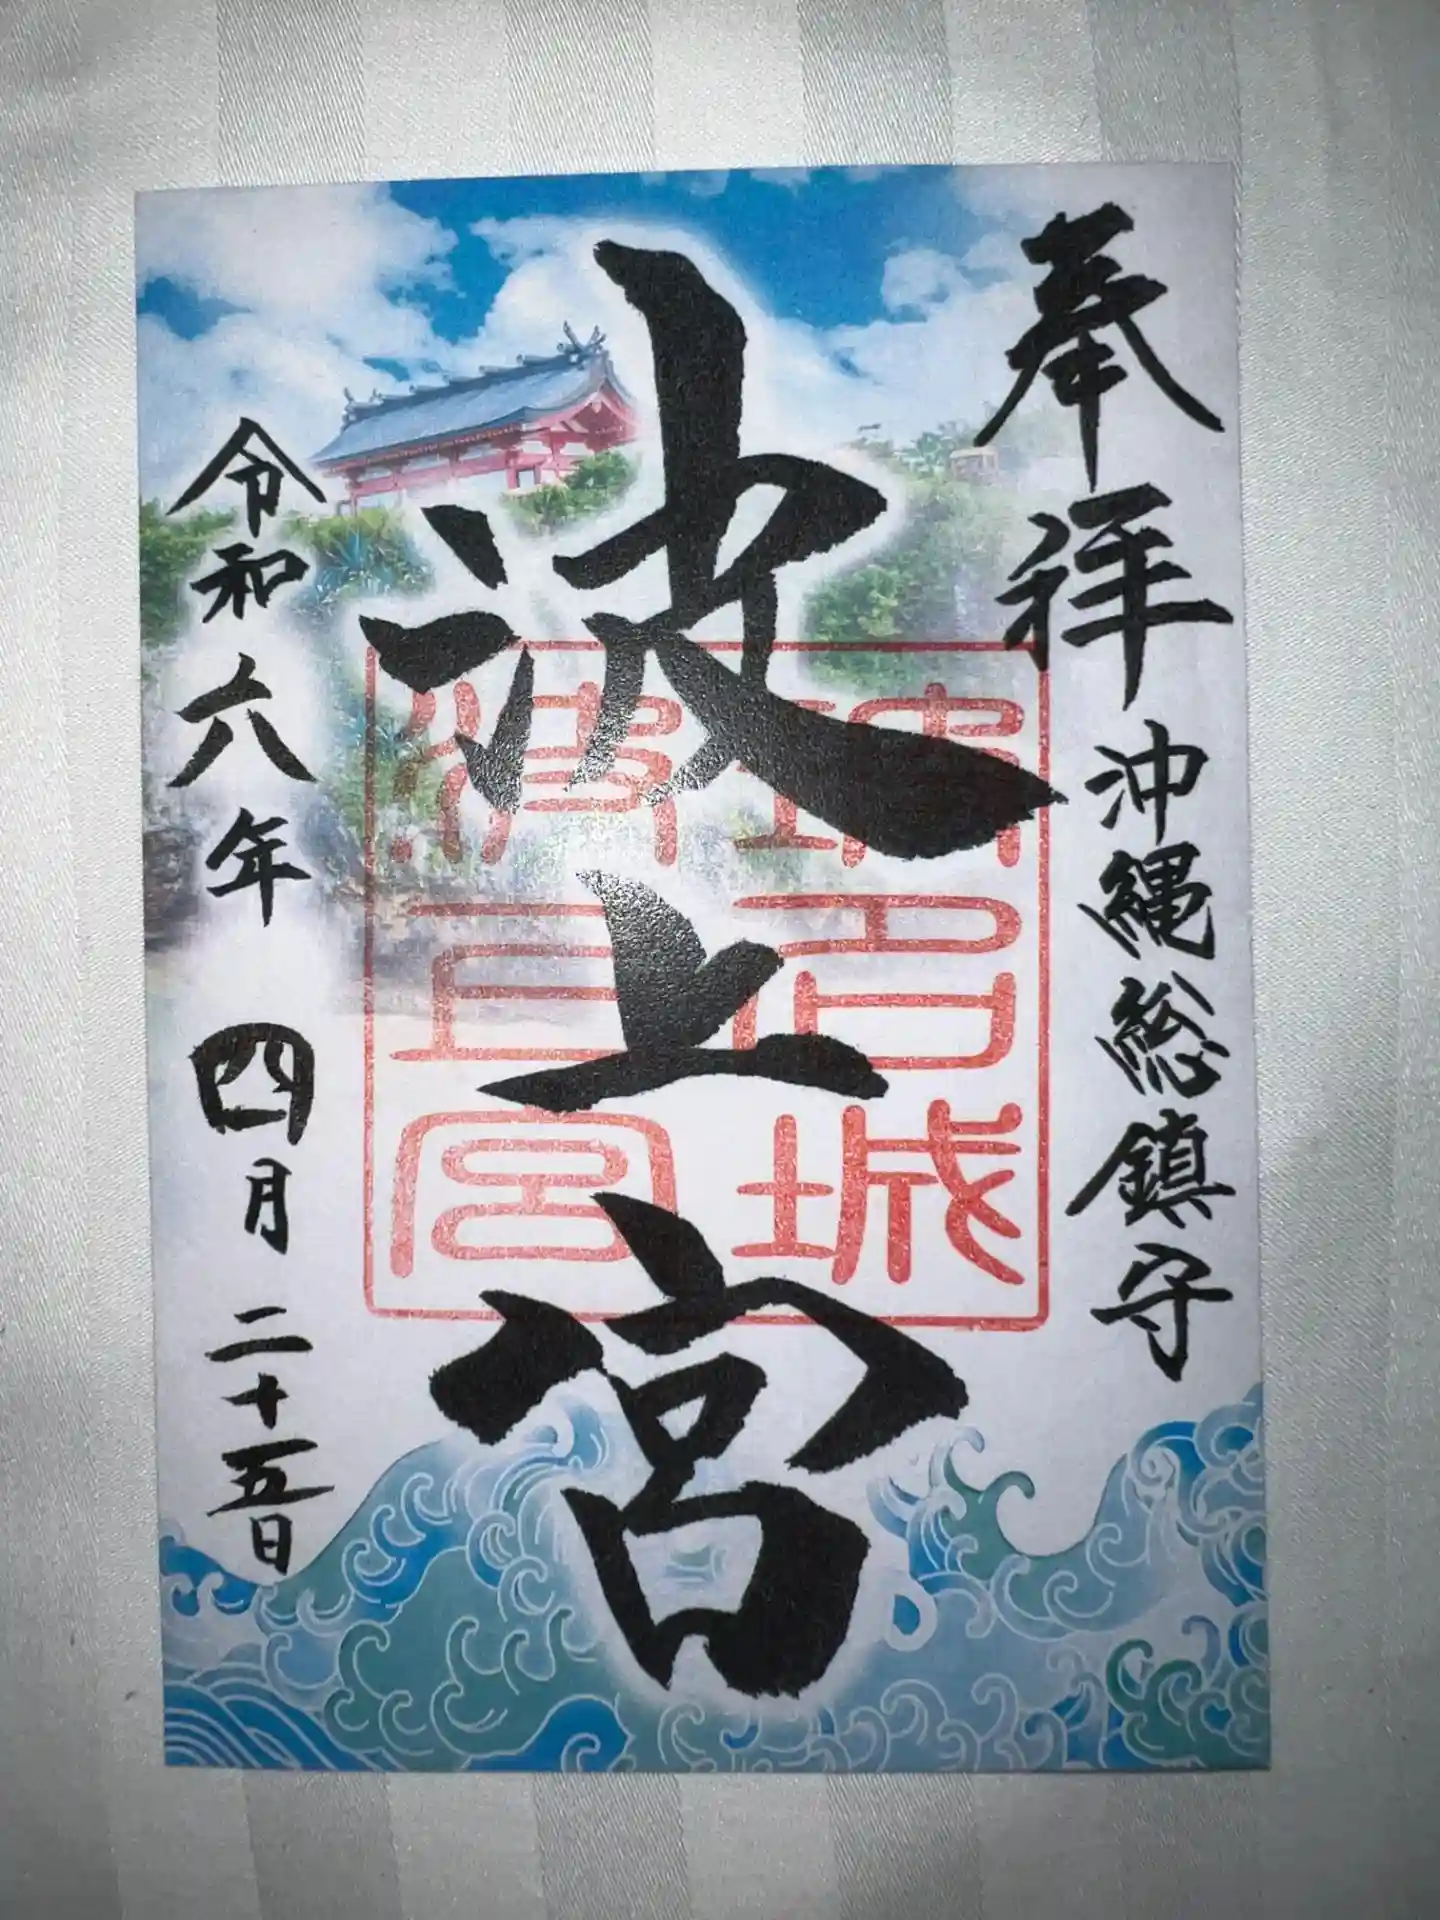 奉拝
沖縄総鎮守
波上宮
琉球城
波上宮
令和六年四月二十五日